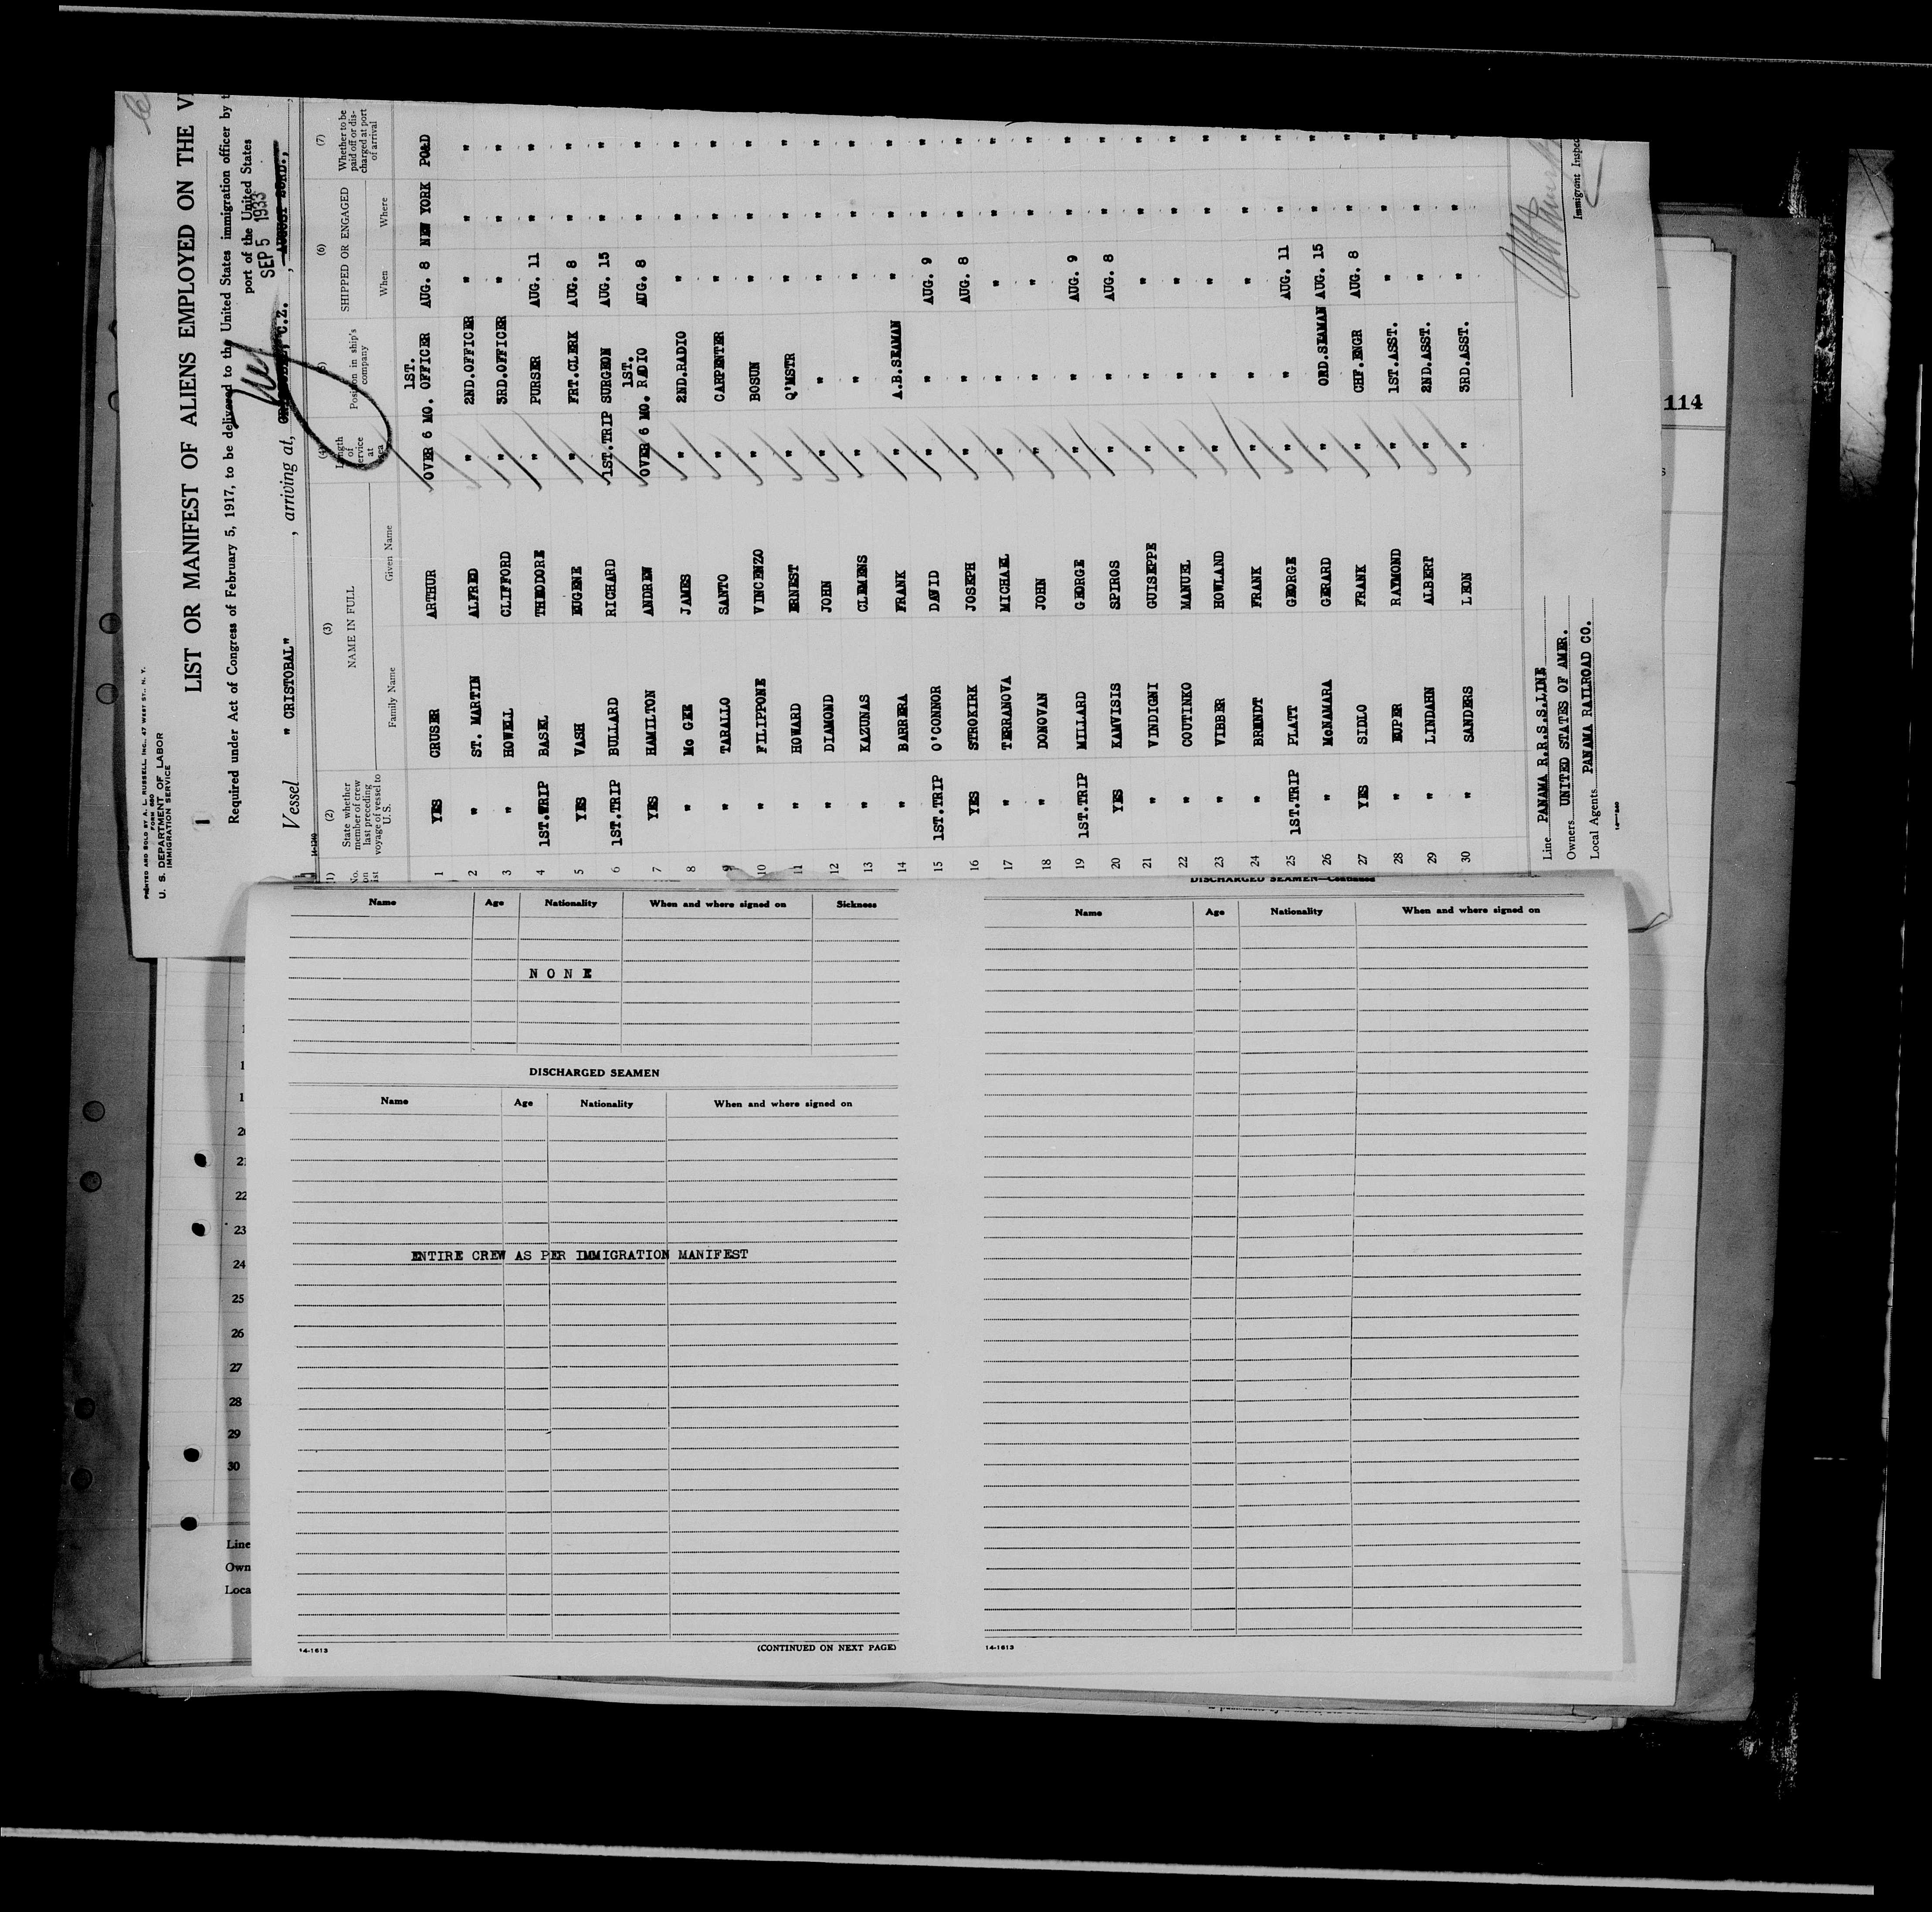 PRINTED AND SOLD BY A. L. RUSSELL, INC., 47 WEST ST., N. Y.
FORM 680
U. S. DEPARTMENT OF LABOR
IMMIGRATION SERVICE
1
LIST OR MANIFEST OF ALIENS EMPLOYED ON THE
Required under Act of Congress of February 5, 1917, to be delivered to the United States immigration officer by
port of the United States
SEP 5 1933
Vessel " CRISTOBAL" , arriving at, C.Z. , AUGUST 23RD.,
14-1240
(1) (2) (3) (4) (6) (7)
No. on list State whether member of crew last preceding voyage of vessel to U.S. NAME IN FULL Family Name Given Name Length of service at sea Position in ship's company SHIPPED OR ENGAGED When Where Whether to be paid off or discharged at port of arrival
1 YES CRUSER ARTHUR OVER 6 MO. 1ST. OFFICER AUG. 8 NEW YORK PO&D
2 " ST. MARTIN ALFRED " 2ND.OFFICER " " "
3 " HOWELL CLIFFORD " 3RD.OFFICER " " "
4 1ST.TRIP BASEL THEODORE " PURSER AUG. 11 " "
5 YES VASH EUGENE " FRT.CLERK AUG. 8 " "
6 1ST.TRIP BULLARD RICHARD 1ST.TRIP SURGEON AUG. 15 " "
7 YES HAMILTON ANDREW OVER 6 MO. 1ST. RADIO AUG. 8 " "
8 " Mc GEE JAMES " 2ND.RADIO " " "
9 " TARALLO SANTO " CARPENTER " " "
10 " FILIPPONE VINCENZO " BOSUN " " "
11 " HOWARD ERNEST " Q'MSTR " " "
12 " DIAMOND JOHN " " " " "
13 " KAZUNAS CLEMENS " " " " "
14 " BARRERA FRANK " A.B.SEAMAN " " "
15 1ST.TRIP O'CONNOR DAVID " " AUG. 9 " "
16 YES STROKIRK JOSEPH " " AUG. 8 " "
17 " TERRANOVA MICHAEL " " " " "
18 " DONOVAN JOHN " " " " "
19 1ST.TRIP MILLARD GEORGE " " AUG. 9 " "
20 YES KAMVISIS SPIROS " " AUG. 8 " "
21 " VINDIGNI GUISEPPE " " " " "
22 " COUTINKO MANUEL " " " " "
23 " VIBBER HOWLAND " " " " "
24 " BRENDT FRANK " " " " "
25 1ST.TRIP PLATT GEORGE " " AUG. 11 " "
26 " McNAMARA GERARD " ORD.SEAMAN AUG. 15 " "
27 YES SIDLO FRANK " CHF.ENGR AUG. 8 " "
28 " EUPER RAYMOND " 1ST.ASST. " " "
29 " LINDAHN ALBERT " 2ND.ASST. " " "
30 " SANDERS LEON " 3RD.ASST. " " "
Line PANAMA R.R.S.S.LINE
Owners UNITED STATES OF AMER.
Local Agents PANAMA RAILROAD CO.
Immigrant
114
Name Age Nationality When and where signed on Sickness
NONE
DISCHARGED SEAMEN
Name Age Nationality When and where signed on
ENTIRE CREW AS PER IMMIGRATION MANIFEST
14-1613 (CONTINUED ON NEXT PAGE)
DISCHARGED SEAMEN—Continued
Name Age Nationality When and where signed on
14-1613
21
22
23
24
25
26
27
28
29
30
Line